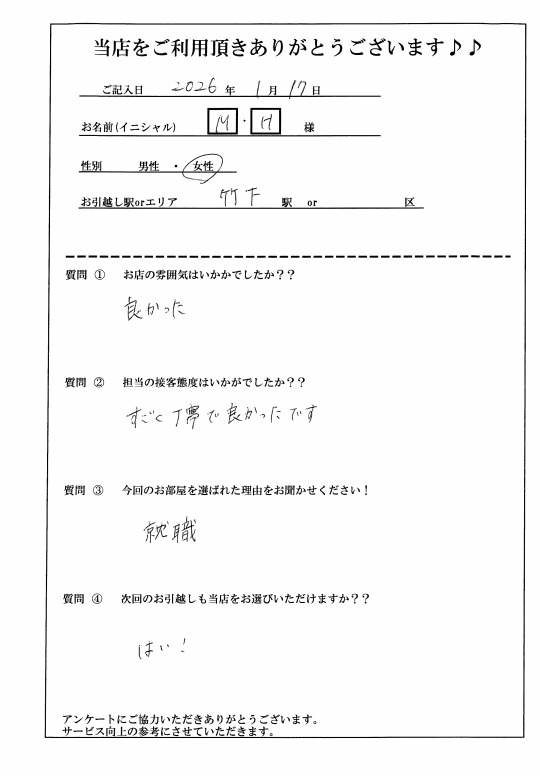 当店をご利用頂きありがとうございます♪♪
ご記入日 2026 年 1 月 17 日
お名前(イニシャル) M ・ H 様
性別 男性 ・ 女性
お引越し駅orエリア 竹下 駅 or 区
質問 ① お店の雰囲気はいかかでしたか??
良かった
質問 ② 担当の接客態度はいかがでしたか??
すごく丁寧で良かったです
質問 ③ 今回のお部屋を選ばれた理由をお聞かせください!
就職
質問 ④ 次回のお引越しも当店をお選びいただけますか??
はい!
アンケートにご協力いただきありがとうございます。
サービス向上の参考にさせていただきます。